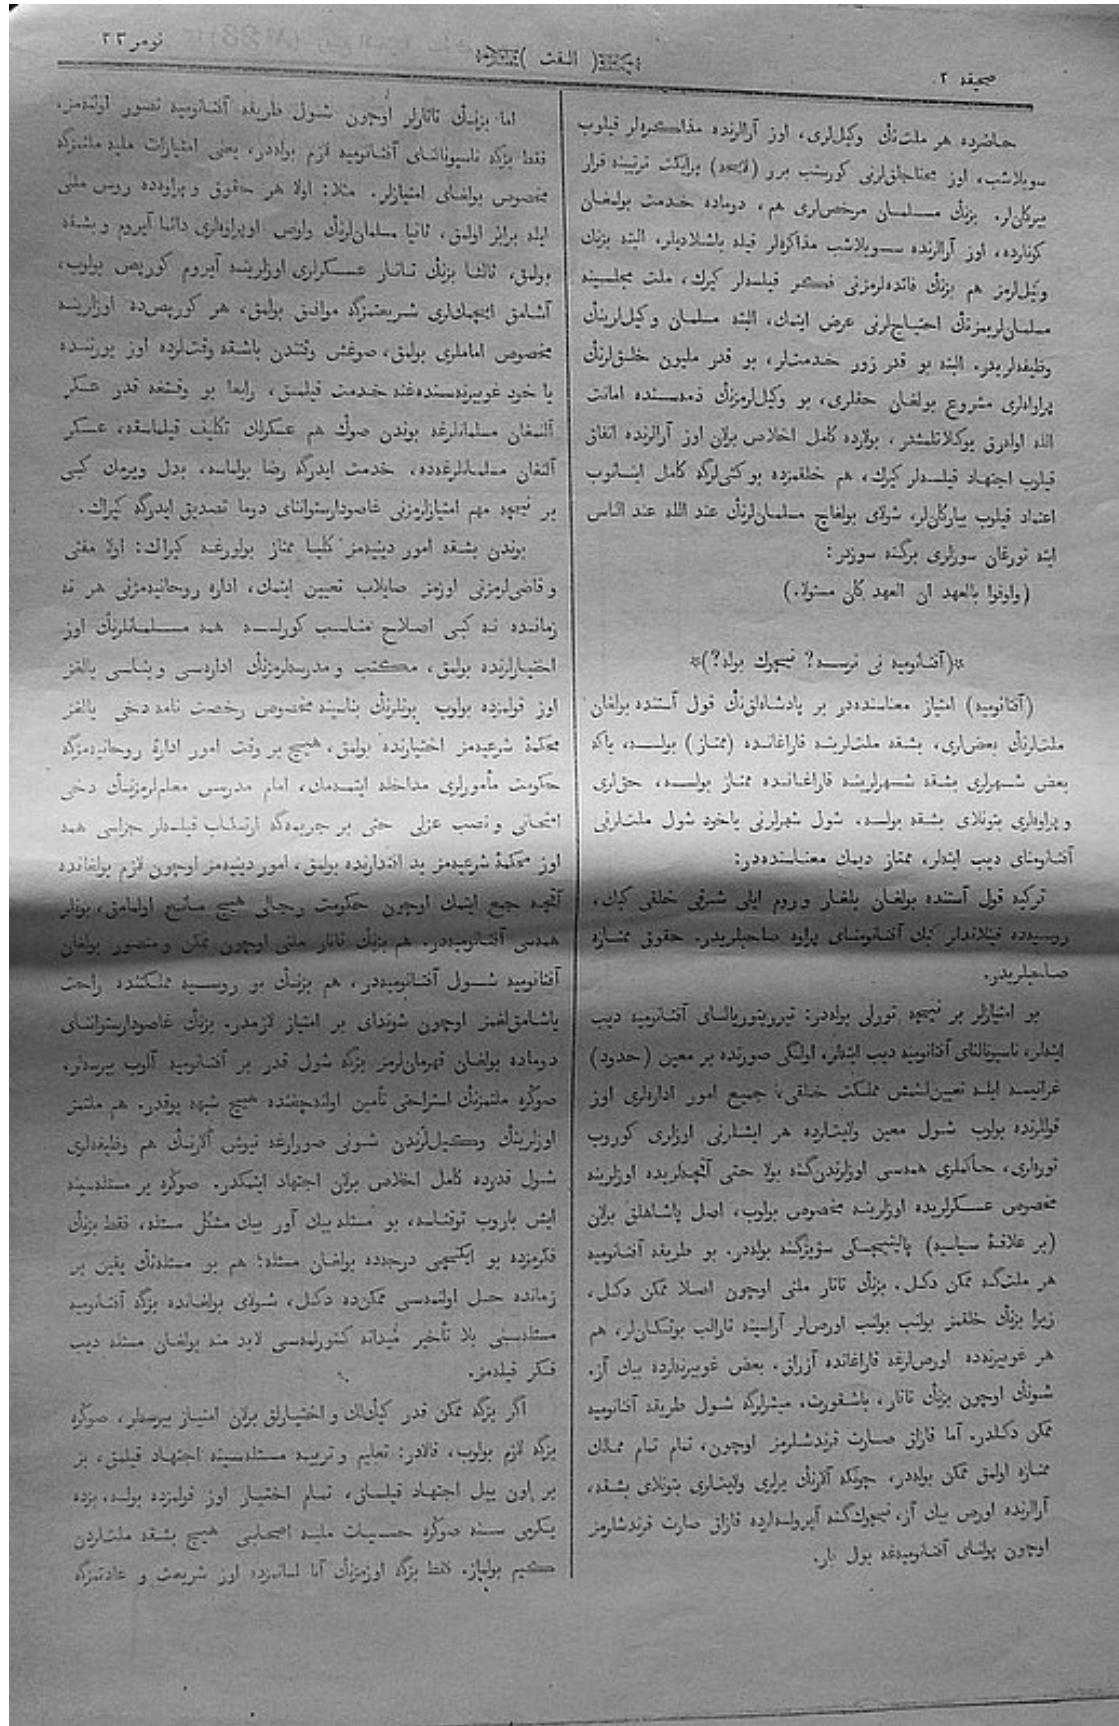 صحیفه ٢
﴿ الفت ﴾
نومر ٢٣
حاضرده هر ملت‌نڭ وکیل‌لری، اوز آرالرنده مذاکره‌لر قیلوب
سویلاشب، اوز محتاجلق‌لرنی کورسه‌تب برر (لایحه) پرایکت ترتیبنه قرار
بیرکان‌لر. بزنڭ مسلمان مرخص‌لری هم، دوماده خدمت بولغان
کونلرده، اوز آرالرنده سویلاشب مذاکره‌لر قیله باشلادیلر. البته بزنڭ
وکیل‌لرمز هم بزنڭ فائده‌لرمزنی فکر قیلسه‌لر کیرك، ملت مجلسینه
مسلمان‌لریمزنڭ احتیاج‌لرنی عرض ایتمك، البته مسلمان وکیل‌لریننڭ
وظیفه‌لریدر. البته بو قدر زور خدمت‌لر، بو قدر ملیون خلق‌لرنڭ
پراوالری مشروع بولغان حقلری، بو وکیل‌لرمزنڭ ذمه‌سنده امانت
الله اولارق یوکلاتلمشدر، بولارده کامل اخلاص برلان اوز آرالرنده اتفاق
قیلوب اجتهاد قیلسه‌لر کیرك، هم خلقمزده بو کشی‌لرگه کامل اینانوب
اعتماد قیلوب بیارکان‌لر، شولای بولغاچ مسلمان‌لرنڭ عند الله عند الناس
ایته تورغان سوزلری برگنه سوزدر:
(واوفوا بالعهد ان العهد كان مسئولا.)
*(آفتانومیه نی نرسه? نیچوك بوله?)*
(آفتانومیه) امتیاز معناسنده‌در بر پادشاه‌لق‌نڭ قول آستنده بولغان
ملت‌لرنڭ بعض‌لری، بشقه ملت‌لرینه قاراغانده (ممتاز) بولسه، یاکه
بعض شهرلری بشقه شهرلرینه قاراغانده ممتاز بولسه، حق‌لری
و پراوه‌لری بتونلای بشقه بولسه. شول شهرلرنی یاخود شول ملت‌لرنی
آفتانومنای دیب ایته‌لر، ممتاز دیمك معناسنده‌در:
ترکیه قول آستنده بولغان بلغار و روم ایلی شرقی خلقی کبك،
روسیه‌ده فینلاندلر کبك آفتانومنای پراوه صاحبلریدر. حقوق ممتازه
صاحبلریدر.
بو امتیازلر بر نیچه تورلی بوله‌در: تیرریتوریالنای آفتانومیه دیب
ایته‌لر، ناسیونالنای آفتانومیه دیب ایته‌لر، اولگی صورتده بر معین (حدود)
غرانیسه ایله تعیین‌لنمش مملکت خلقی، جمیع امور اداره‌لری اوز
قوللرنده بولوب شول معین ولایتلرده هر ایشلرنی اوزلری کوروب
توره‌لری، حاکملری همه‌سی اوزلرندن‌گنه بولا حتی آقچه‌لریده اوزلرینه
مخصوص عسکرلریده اوزلرینه مخصوص بولوب، اصل پاشاهلق برلان
(بر علاقهٔ سیاسیه) پالیتیچسکی سویوزگنه بوله‌در. بو طریقه آفتانومیه
هر ملت‌گه ممکن دکل. بزنڭ تاتار ملتی اوچون اصلا ممکن دکل،
زیرا بزنڭ خلقمز بولنب بولنب اورص‌لر آراسینه تارالب بوتکان‌لر، هم
هر غوبیرنه‌ده اورص‌لرغه قاراغانده آزراق. بعض غوبیرنه‌لرده بیك آز.
شونڭ اوچون بزنڭ تاتار، باشقورت، میشرلرگه شول طریقه آفتانومیه
ممکن دکلدر. آما قازاق صارت قرنداشلرمز اوچون، تمام تمام ممالك
ممتازه اولمق ممکن بوله‌در، چونکه آلارنڭ یرلری ولایتلری بتونلای بشقه،
آرالرنده اورص بیك آز، نیچوك‌گنه آیرولسه‌لرده قازاق صارت قرنداشلرمز
اوچون پولنای آفتانومیه‌غه یول بار.
اما بزنڭ تاتارلر اوچون شول طریقه آفتانومیه تصور اولنه‌مز،
فقط بزگه ناسیونالنای آفتانومیه لازم بوله‌در، یعنی امتیازات ملیه ملتمزگه
مخصوص بولغای امتیازلر. مثلا: اولا هر حقوق و پراوه‌ده روس ملتی
ایله برابر اولمق، ثانیا مسلمان‌لرنڭ
بولمق، ثالثا بزنڭ تاتار عسکرلری اوزلرینه آیروم کورپص بولوب،
آشامق ایچمك‌لری شریعتمزگه موافق بولمق، هر کورپص‌ده اوزلرینه
مخصوص اماملری بولمق، صوغش وقتندن باشقه وقت‌لرده اوز یورتنده
یا خود غوبیرنه‌سنده‌غنه خدمت قیلمق، رابعا بو وقتغه قدر عسکر
آلنمغان مسلمانلرغه بوندن صوڭ هم عسکرلك تکلیف قیلماسقه، عسکر
آلنغان مسلمانلرغه‌ده، خدمت ایدرگه رضا بولماسه، بدل ویرمك کبی
بر نیچه مهم امتیازلرمزنی غاصودارستواننای دوما تصدیق ایدرگه کیراك.
بوندن بشقه امور دینیه‌مز کلیا ممتاز بولورغه کیراك: اولا مفتی
و قاضی‌لرمزنی اوزمز صایلاب تعیین ایتمك، اداره روحانیه‌مزنی هر نه
زمانده نه کبی اصلاح مناسب کورلسه همه مسلمانلرنڭ اوز
اختیارلرنده بولمق، مکتب و مدرسه‌لرمزنڭ اداره‌سی و بناسی یالغز
اوز قولمزده بولوب بونلرنڭ بناسینه مخصوص رخصت نامه دخی یالغز
محکمهٔ شرعیه‌مز اختیارنده بولمق، هیچ بر وقت امور ادارهٔ روحانیه‌مزگه
حکومت مأمورلری مداخله ایتمه‌مك، امام مدرس معلم‌لرمزنڭ دخی
امتحانی و نصب عزلی حتی بر جریمه‌گه ارتکاب قیلسه‌لر جزاسی همه
اوز محکمهٔ شرعیه‌مز ید اقتدارنده بولمق، امور دینیه‌مز اوچون لازم بولغانده
آقچه جمع ایتمك اوچون حکومت رجالی هیچ مانع اولمامق، بونلر
همه‌سی آفتانومیه‌در. هم بزنڭ تاتار ملتی اوچون ممکن و متصور بولغان
آفتانومیه شول آفتانومیه‌در، هم بزنڭ بو روسیه مملکتنده راحت
یاشامق‌لغمز اوچون شوندای بر امتیاز لازمدر. بزنڭ غاصودارستواننای
دوماده بولغان قهرمان‌لرمز بزگه شول قدر بر آفتانومیه آلوب بیرسه‌لر،
صوڭره ملتمزنڭ استراحتی تأمین اولنه‌چغنده هیچ شبهه یوقدر. هم ملتمز
اوزلرینڭ وکیل‌لرندن شونی صورارغه تیوش آلارنڭ هم وظیفه‌لری
شول قدرده کامل اخلاص برلان اجتهاد ایتمکدر. صوڭره یر مسئله‌سینه
ایش باروب توقتاسه، بو مسئله بیك آور بیك مشکل مسئله، فقط بزنڭ
فکرمزده بو ایکنچی درجه‌ده بولغان مسئله؛ هم بو مسئله‌نڭ یقین بر
زمانده حل اولنمه‌سی ممکن‌ده دکل، شولای بولغانده بزگه آفتانومیه
مسئله‌سنی بلا تأخیر میدانه کتورلمه‌سی لابد منه بولغان مسئله دیب
فکر قیله‌مز.
اگر بزگه ممکن قدر کیڭ‌لك و اختیارلق برلان امتیاز بیرسه‌لر، صوڭره
بزگه لازم بولوب، قالادر: تعلیم و تربیه مسئله‌سینه اجتهاد قیلمق، بز
بر اون ییل اجتهاد قیلساق، تمام اختیار اوز قولمزده بولسه، بزده
یکرمی سنه صوڭره حسیات ملیه اصحابی هیچ بشقه ملت‌لردن
کیم بولماز. فقط بزگه اوزمزنڭ آنا لسانمزده اوز شریعت و عادتمزگه